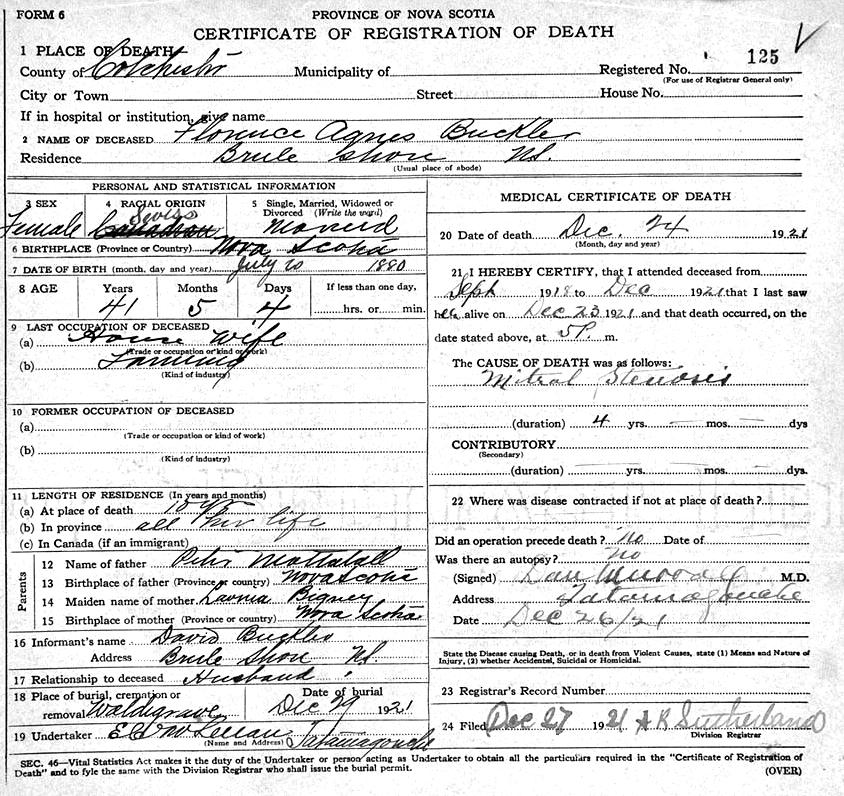 FORM 6
PROVINCE OF NOVA SCOTIA
CERTIFICATE OF REGISTRATION OF DEATH
1 PLACE OF DEATH
County of Colchester Municipality of Registered No. 125
(For use of Registrar General only)
City or Town Street House No.
If in hospital or institution, give name
2 NAME OF DECEASED Florence Agnes Buckler
Residence Brule Shore NS.
(Usual place of abode)
PERSONAL AND STATISTICAL INFORMATION
3 SEX 4 RACIAL ORIGIN 5 Single, Married, Widowed or Divorced (Write the word)
Female Swiss Canadian Married
6 BIRTHPLACE (Province or Country) Nova Scotia
7 DATE OF BIRTH (month, day and year) July 20 1880
8 AGE Years Months Days If less than one day,
41 5 4 hrs. or min.
9 LAST OCCUPATION OF DECEASED
(a) House wife
(Trade or occupation or kind of work)
(b) Farming
(Kind of industry)
10 FORMER OCCUPATION OF DECEASED
(a)
(Trade or occupation or kind of work)
(b)
(Kind of industry)
11 LENGTH OF RESIDENCE (In years and months)
(a) At place of death yrs
(b) In province all her life
(c) In Canada (if an immigrant)
Parents
12 Name of father Peter Mattatall
13 Birthplace of father (Province or country) Nova Scotia
14 Maiden name of mother Lavinia Bigney
15 Birthplace of mother (Province or country) Nova Scotia
16 Informant's name David Buckler
Address Brule Shore NS.
17 Relationship to deceased Husband
18 Place of burial, cremation or removal Waldegrave Date of burial Dec 29 1921
19 Undertaker McLennan Tatamagouche
(Name and Address)
MEDICAL CERTIFICATE OF DEATH
20 Date of death Dec. 24 1921
(Month, day and year)
21 I HEREBY CERTIFY, that I attended deceased from
Sept 1918 to Dec 1921 that I last saw
her alive on Dec 23 1921 and that death occurred, on the
date stated above, at 5 P. m.
The CAUSE OF DEATH was as follows:
Mitral Stenosis
(duration) 4 yrs. — mos. — dys
CONTRIBUTORY
(Secondary)
(duration) yrs. mos. dys.
22 Where was disease contracted if not at place of death?
Did an operation precede death? no Date of
Was there an autopsy? no
(Signed) Dan Murray M.D.
Address Tatamagouche
Date Dec 26/21
State the Disease causing Death, or in death from Violent Causes, state (1) Means and Nature of Injury, (2) whether Accidental, Suicidal or Homicidal.
23 Registrar's Record Number
24 Filed Dec 27 1921 Sutherland
Division Registrar
SEC. 46—Vital Statistics Act makes it the duty of the Undertaker or person acting as Undertaker to obtain all the particulars required in the "Certificate of Registration of
Death" and to fyle the same with the Division Registrar who shall issue the burial permit. (OVER)